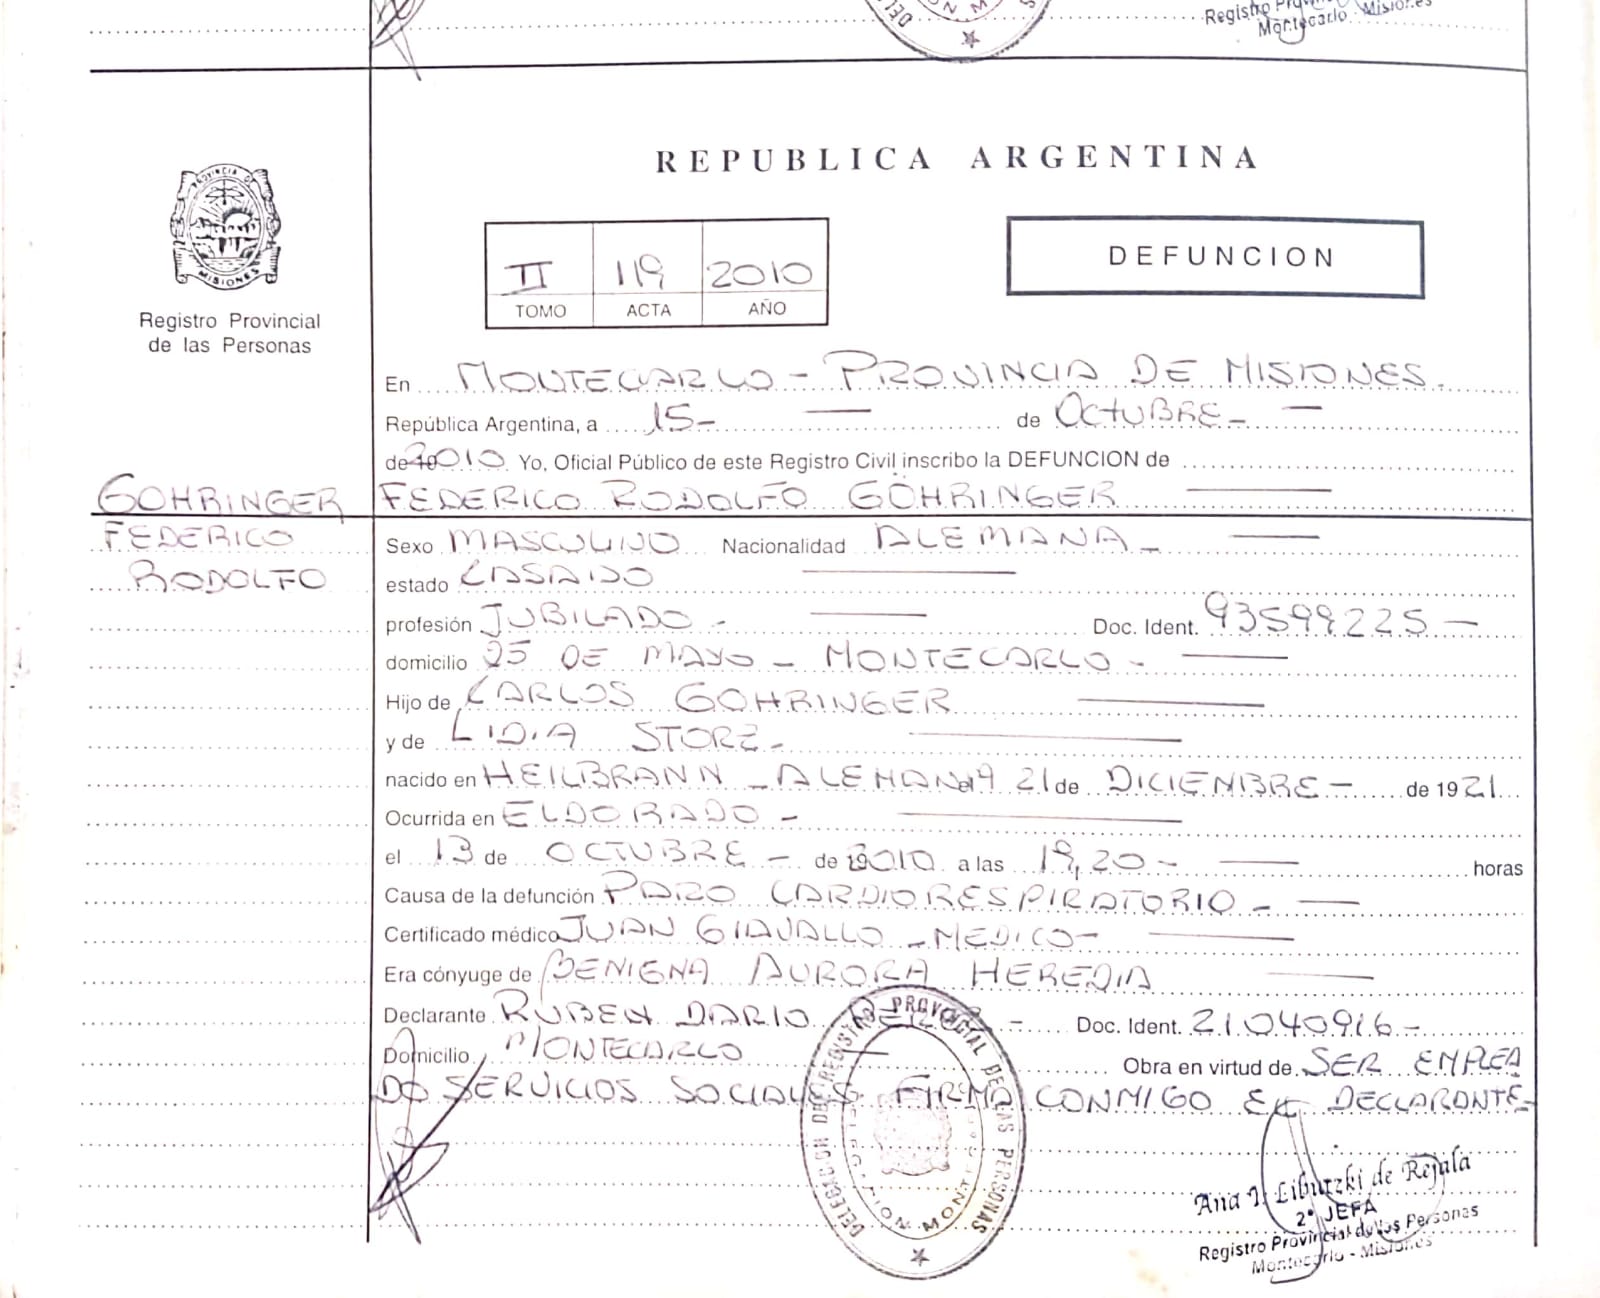 Registro Prov
Montecarlo - Misiones
REPUBLICA ARGENTINA
PROVINCIA DE
MISIONES
Registro Provincial
de las Personas
II 119 2010
TOMO ACTA AÑO
DEFUNCION
En MONTECARLO - PROVINCIA DE MISIONES.
República Argentina, a 15- de OCTUBRE-
de 2010 Yo, Oficial Público de este Registro Civil inscribo la DEFUNCION de
GOHRINGER FEDERICO RODOLFO GÖHRINGER
FEDERICO
RODOLFO
Sexo MASCULINO Nacionalidad ALEMANA-
estado CASADO
profesión JUBILADO- Doc. Ident. 93599225-
domicilio 25 DE MAYO - MONTECARLO-
Hijo de CARLOS GOHRINGER
y de LIDIA STORZ-
nacido en HEILBRANN - ALEMANIA 21 de DICIEMBRE- de 1921
Ocurrida en ELDORADO-
el 13 de OCTUBRE- de 2010 a las 19,20- horas
Causa de la defunción PARO CARDIORESPIRATORIO-
Certificado médico JUAN GIAVALLO - MEDICO-
Era cónyuge de BENIGNA AURORA HEREDIA
Declarante RUBEN DARIO - Doc. Ident. 21.040.916-
Domicilio MONTECARLO Obra en virtud de SER EMPLEA
DO SERVICIOS SOCIALES FIRMA CONMIGO EL DECLARANTE-
DELEGACION DEL REGISTRO PROVINCIAL DE LAS PERSONAS
MONTE
Ana I. Liburzki de Rejala
2° JEFA
Registro Provincial de las Personas
Montecarlo - Misiones